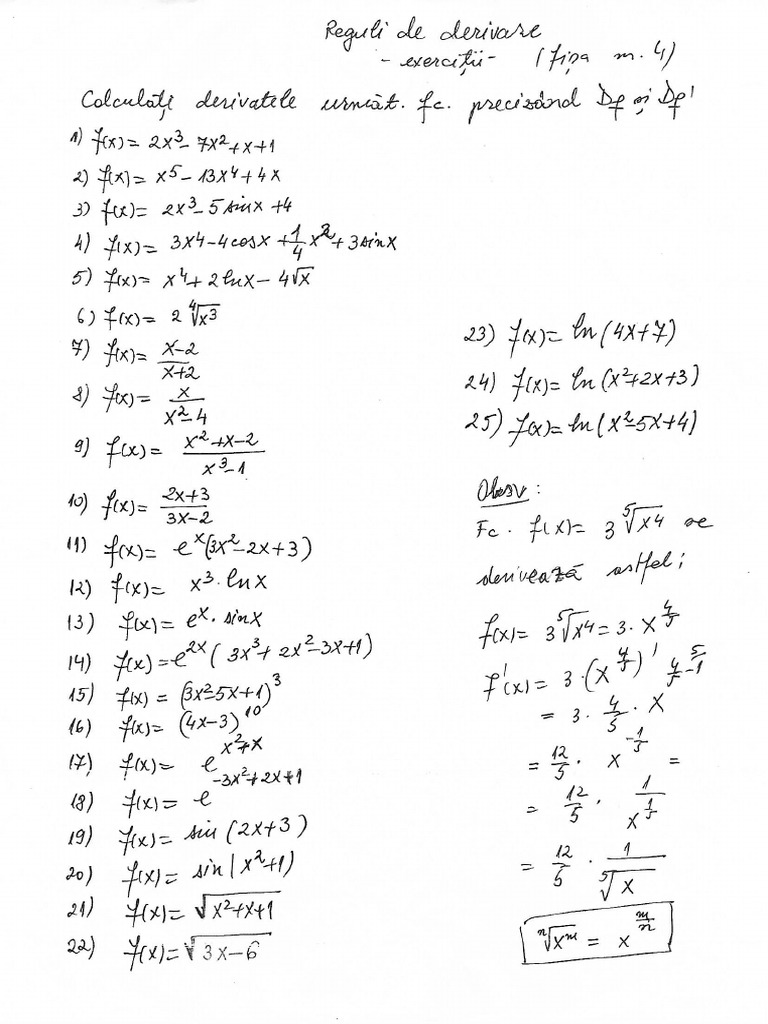 Reguli de derivare
- exerciții - (fișa nr. 4)
Calculați derivatele următ. fc. precizând Df și Df'
1) f(x) = 2x³ - 7x² + x + 1
2) f(x) = x⁵ - 13x⁴ + 4x
3) f(x) = 2x³ - 5 sin x + 4
4) f(x) = 3x⁴ - 4cos x + 1/4 x² + 3 sin x
5) f(x) = x⁴ + 2 ln x - 4√x
6) f(x) = 2 ⁴√x³
7) f(x) = (x-2)/(x+2)
8) f(x) = x/(x²-4)
9) f(x) = (x²+x-2)/(x³-1)
10) f(x) = (2x+3)/(3x-2)
11) f(x) = eˣ(3x² - 2x + 3)
12) f(x) = x³ · ln x
13) f(x) = eˣ · sin x
14) f(x) = e²ˣ (3x³ + 2x² - 3x + 1)
15) f(x) = (3x² - 5x + 1)³
16) f(x) = (4x - 3)¹⁰
17) f(x) = e^(x²+x)
18) f(x) = e^(-3x²+2x+1)
19) f(x) = sin (2x+3)
20) f(x) = sin (x²+1)
21) f(x) = √(x²+x+1)
22) f(x) = √(3x-6)
23) f(x) = ln (4x+7)
24) f(x) = ln (x²+2x+3)
25) f(x) = ln (x²-5x+4)
Obsv:
Fc. f(x) = 3 ⁵√x⁴ se
derivează astfel:
f(x) = 3 ⁵√x⁴ = 3 · x^(4/5)
f'(x) = 3 · (x^(4/5))'
= 3 · 4/5 · x^(4/5 - 5/1)
= 12/5 · x^(-1/5) =
= 12/5 · 1/x^(1/5)
= 12/5 · 1/⁵√x
ⁿ√xᵐ = x^(m/n)